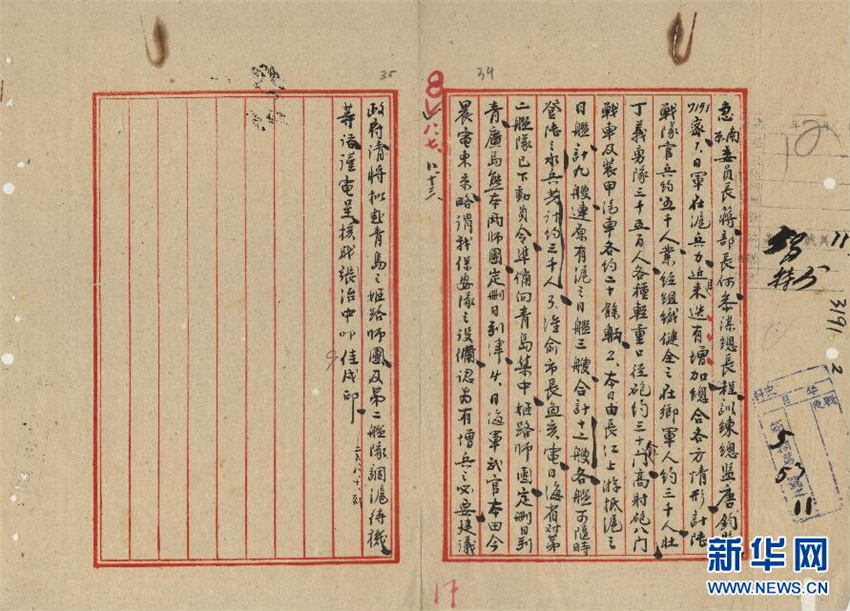 急南京委員長蔣部長何參謀總長程訓練總監唐鈞鑒
7193密1、日軍在滬兵力近月來迭有增加總合各方情形計陸
戰隊官兵約五千人業經組織健全之在鄉軍人約三千人壯
丁義勇隊三千五百人各種輕重口徑砲約三十餘門高射砲八門
戰車及裝甲汽車各約二十餘輛2、本日由長江上游抵滬之
日艦計九艘連原有滬之日艦三艘合計十二艘各艦可隨時
登陸之水兵共計約三千人3、准俞市長魚亥電日海省對第
二艦隊已下動員令準備向青島集中姬路師團定刪日到
青廣島熊本兩師團定刪日到津4、日海軍武官本田今
晨電東京略謂我保安隊之設備認為有增兵之必要建議
政府請將擬赴青島之姬路師團及第二艦隊調滬待機
等語謹電呈核職張治中叩佳戌印
34
35
11
3191
2
5
57
11
17
新华网
WWW.NEWS.CN